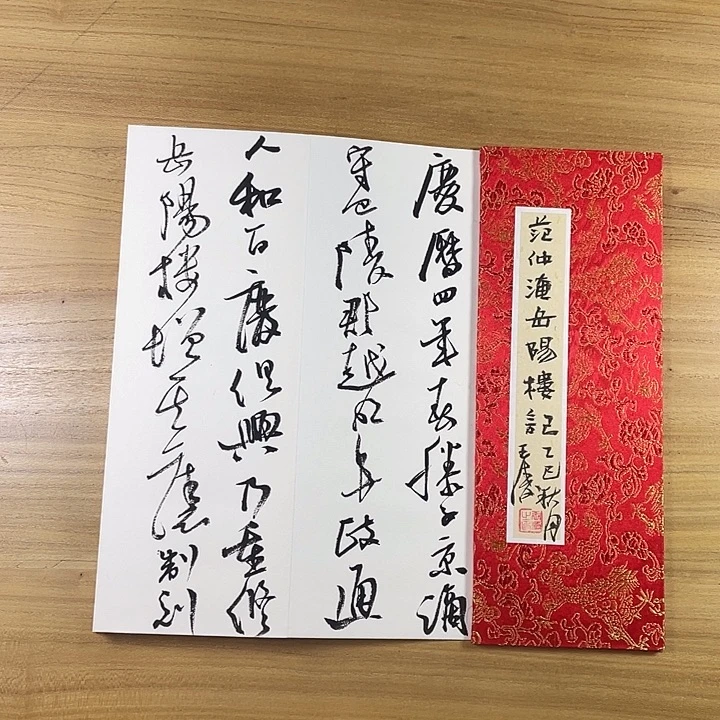 范仲淹岳陽樓記
乙巳秋月
王
慶曆四年春滕子京謫
守巴陵郡越明年政通
人和百廢俱興乃重修
岳陽樓增其舊制刻